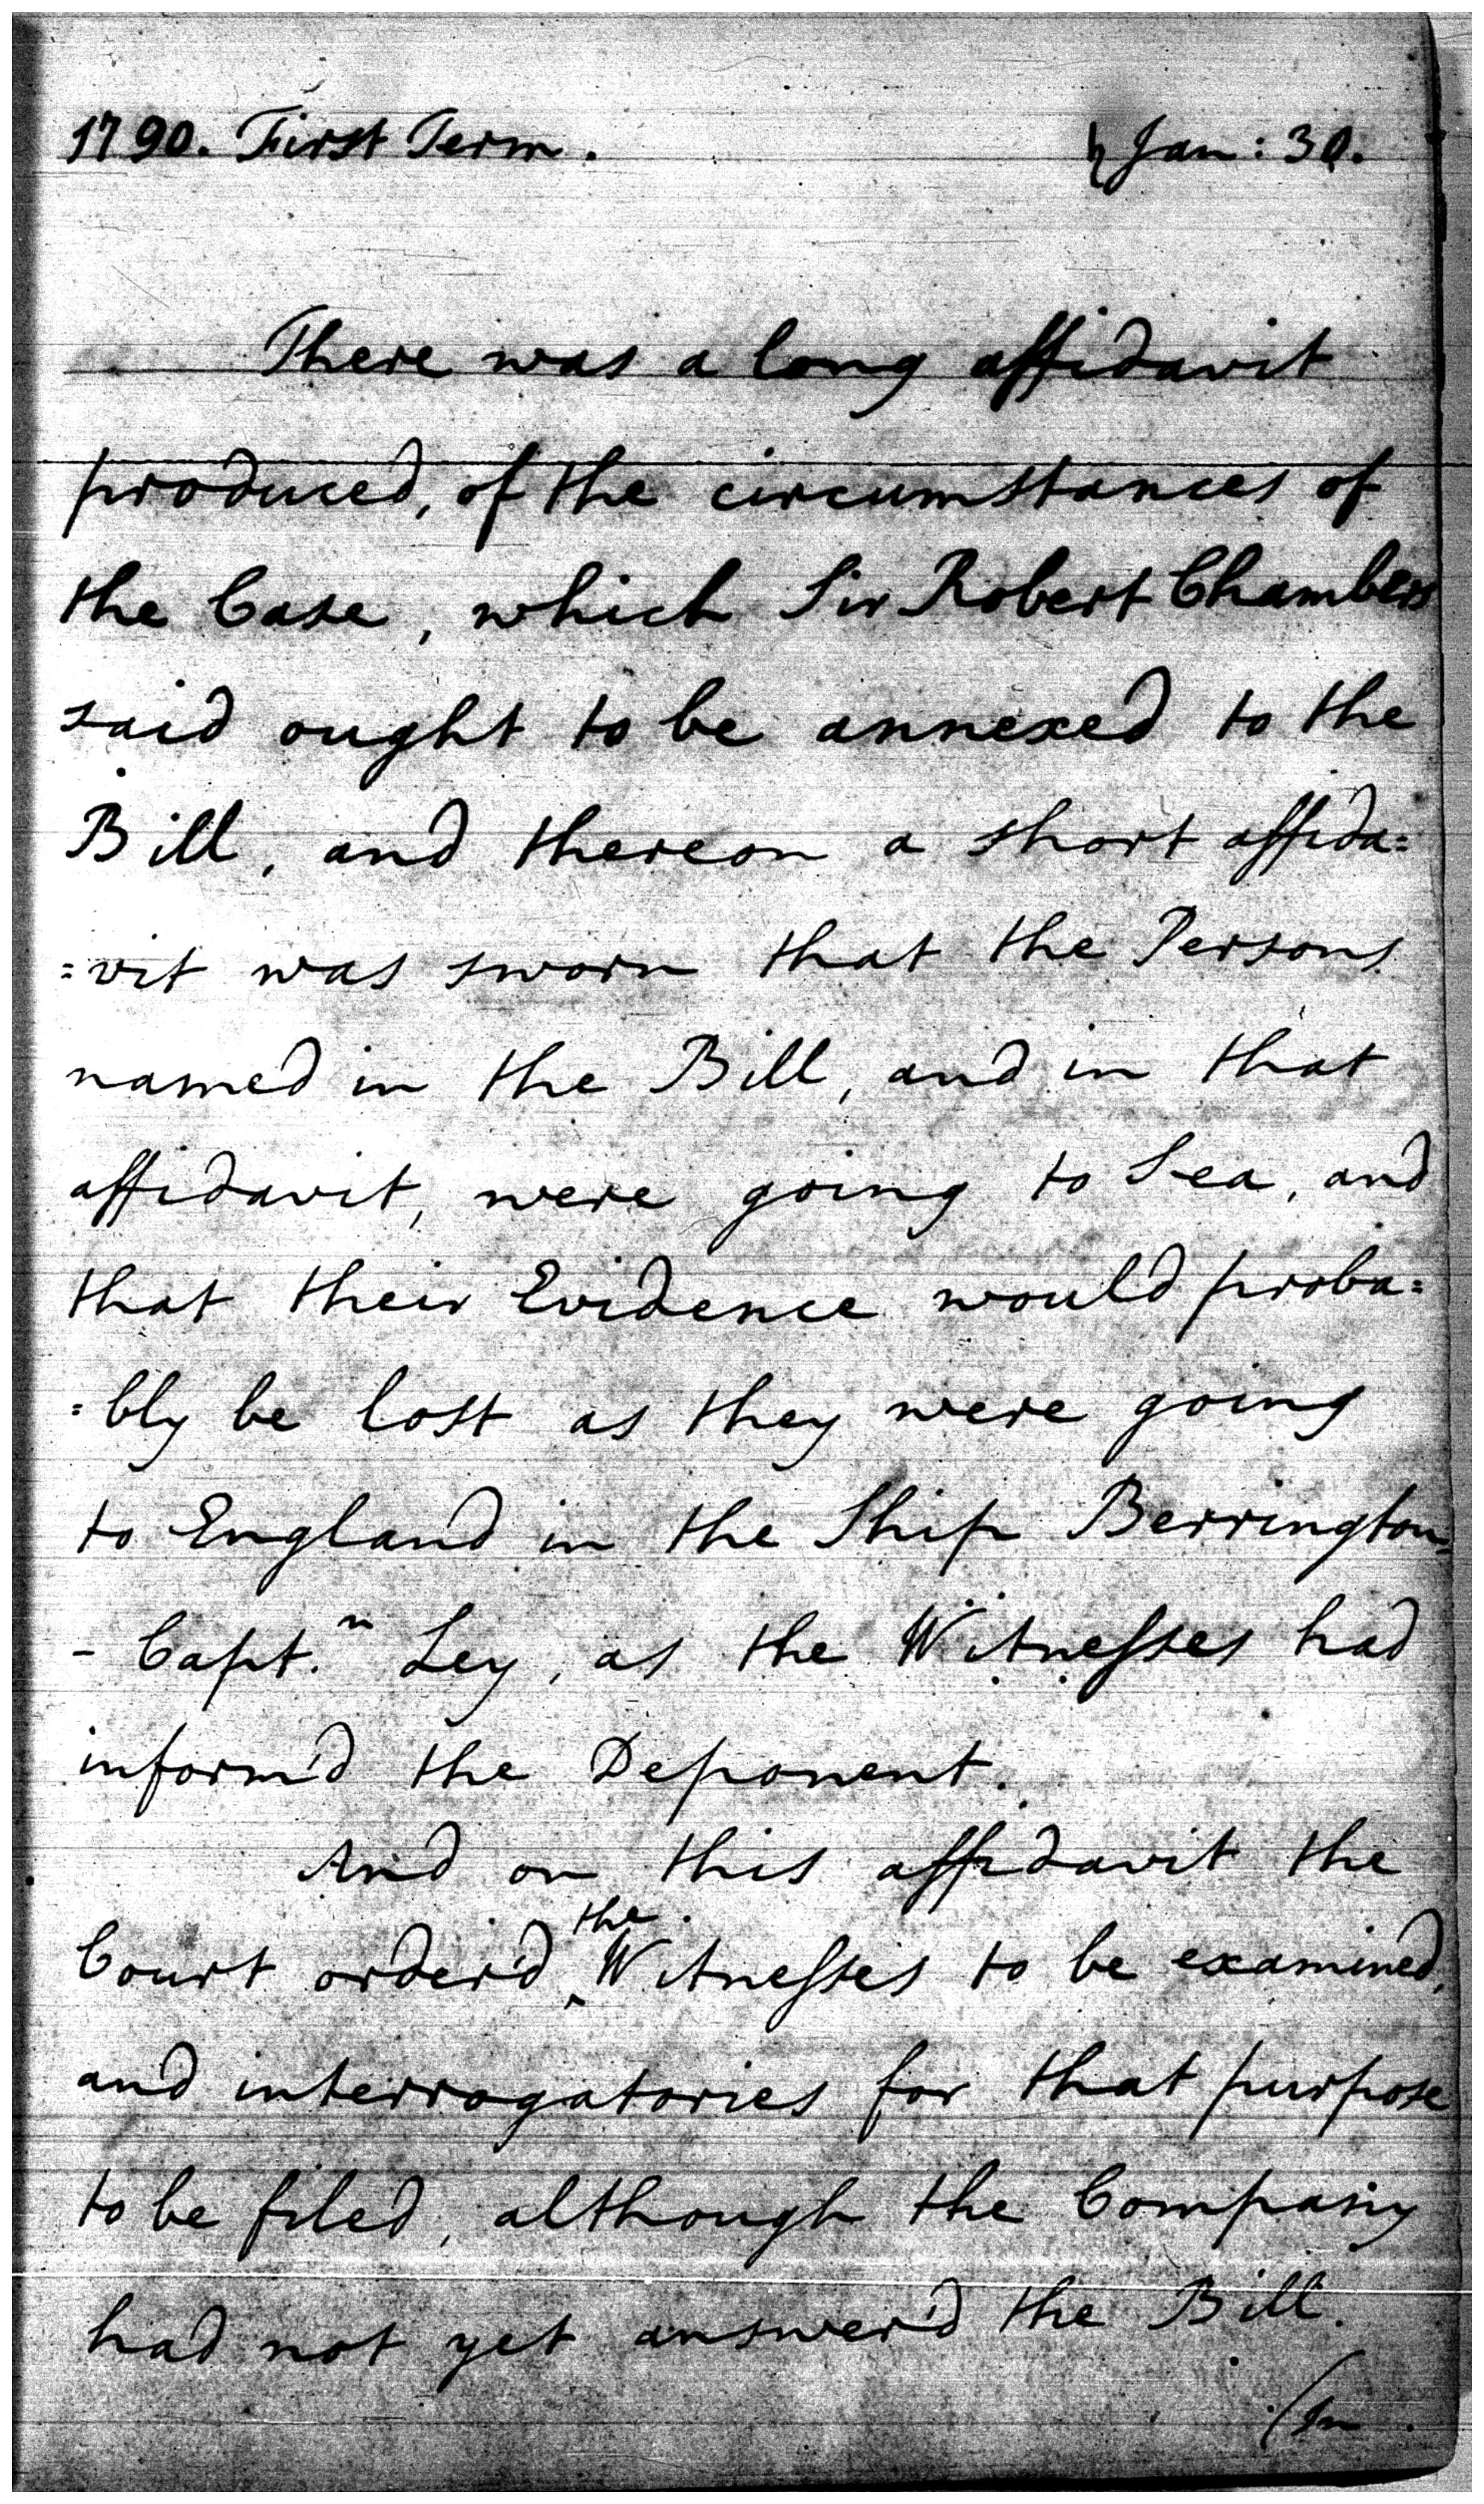 1790. First Term. ♄ Jan: 30.
There was a long affidavit
produced, of the circumstances of
the Case, which Sir Robert Chambers
said ought to be annexed to the
Bill, and thereon a short affida=
=vit was sworn that the Persons
named in the Bill, and in that
affidavit, were going to Sea, and
that their Evidence would proba=
=bly be lost as they were going
to England in the Ship Berrington
- Capt.ⁿ Ley, as the Witnesses had
inform'd the Deponent.
And on this affidavit the
the
Court order'd ‸ Witnesses to be examined,
and interrogatories for that purpose
to be filed, although the Company
had not yet answer'd the Bill.
(In